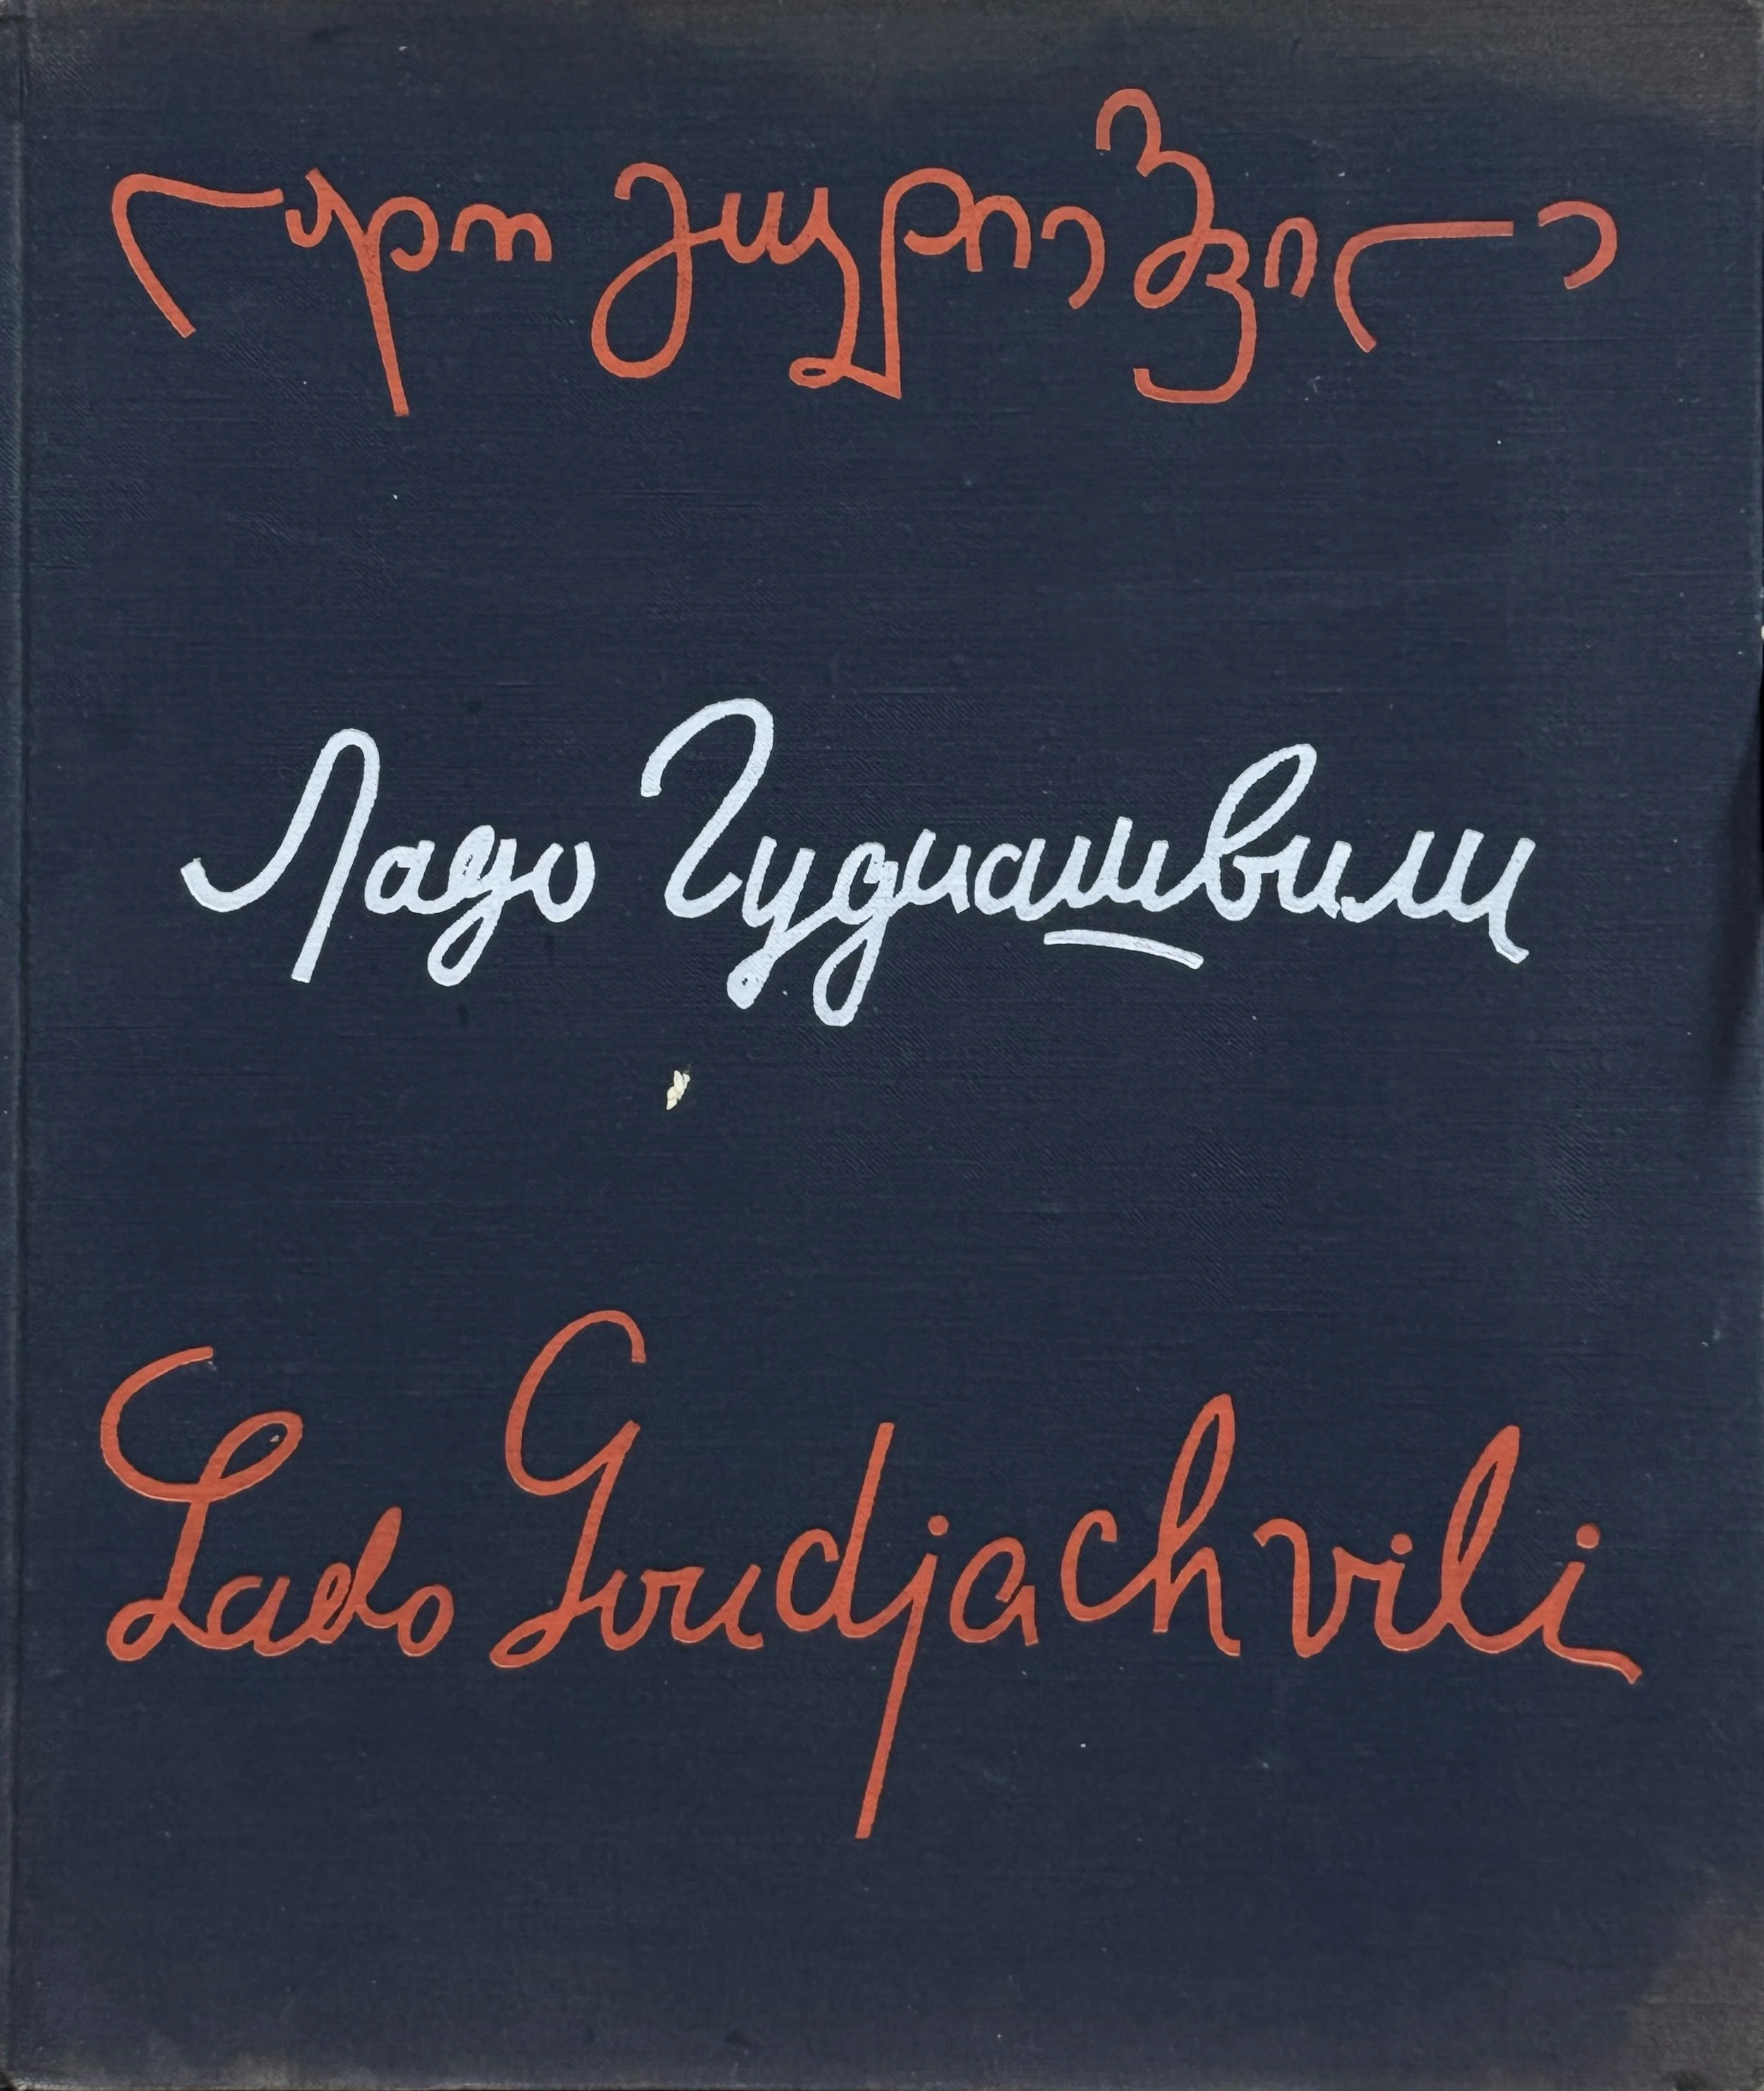 ლადო გუდიაშვილი
Ладо Гудиашвили
Lado Goudjachvili